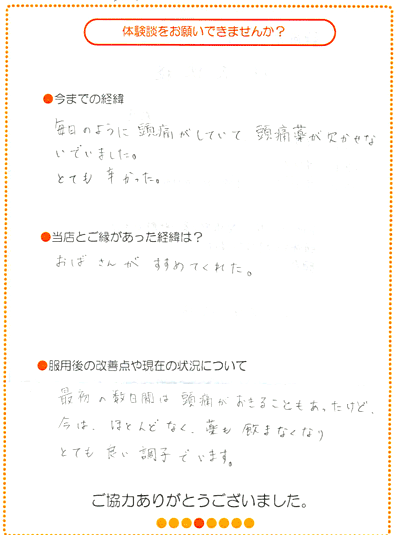 体験談をお願いできませんか？
●今までの経緯
毎日のように頭痛がしていて 頭痛薬が欠かせな
いでいました。
とても 辛かった。
●当店とご縁があった経緯は？
おばさんが すすめてくれた。
●服用後の改善点や現在の状況について
最初の数日間は 頭痛がおきることもあったけど、
今は、ほとんどなく、薬も飲まなくなり
とても良い調子でいます。
ご協力ありがとうございました。